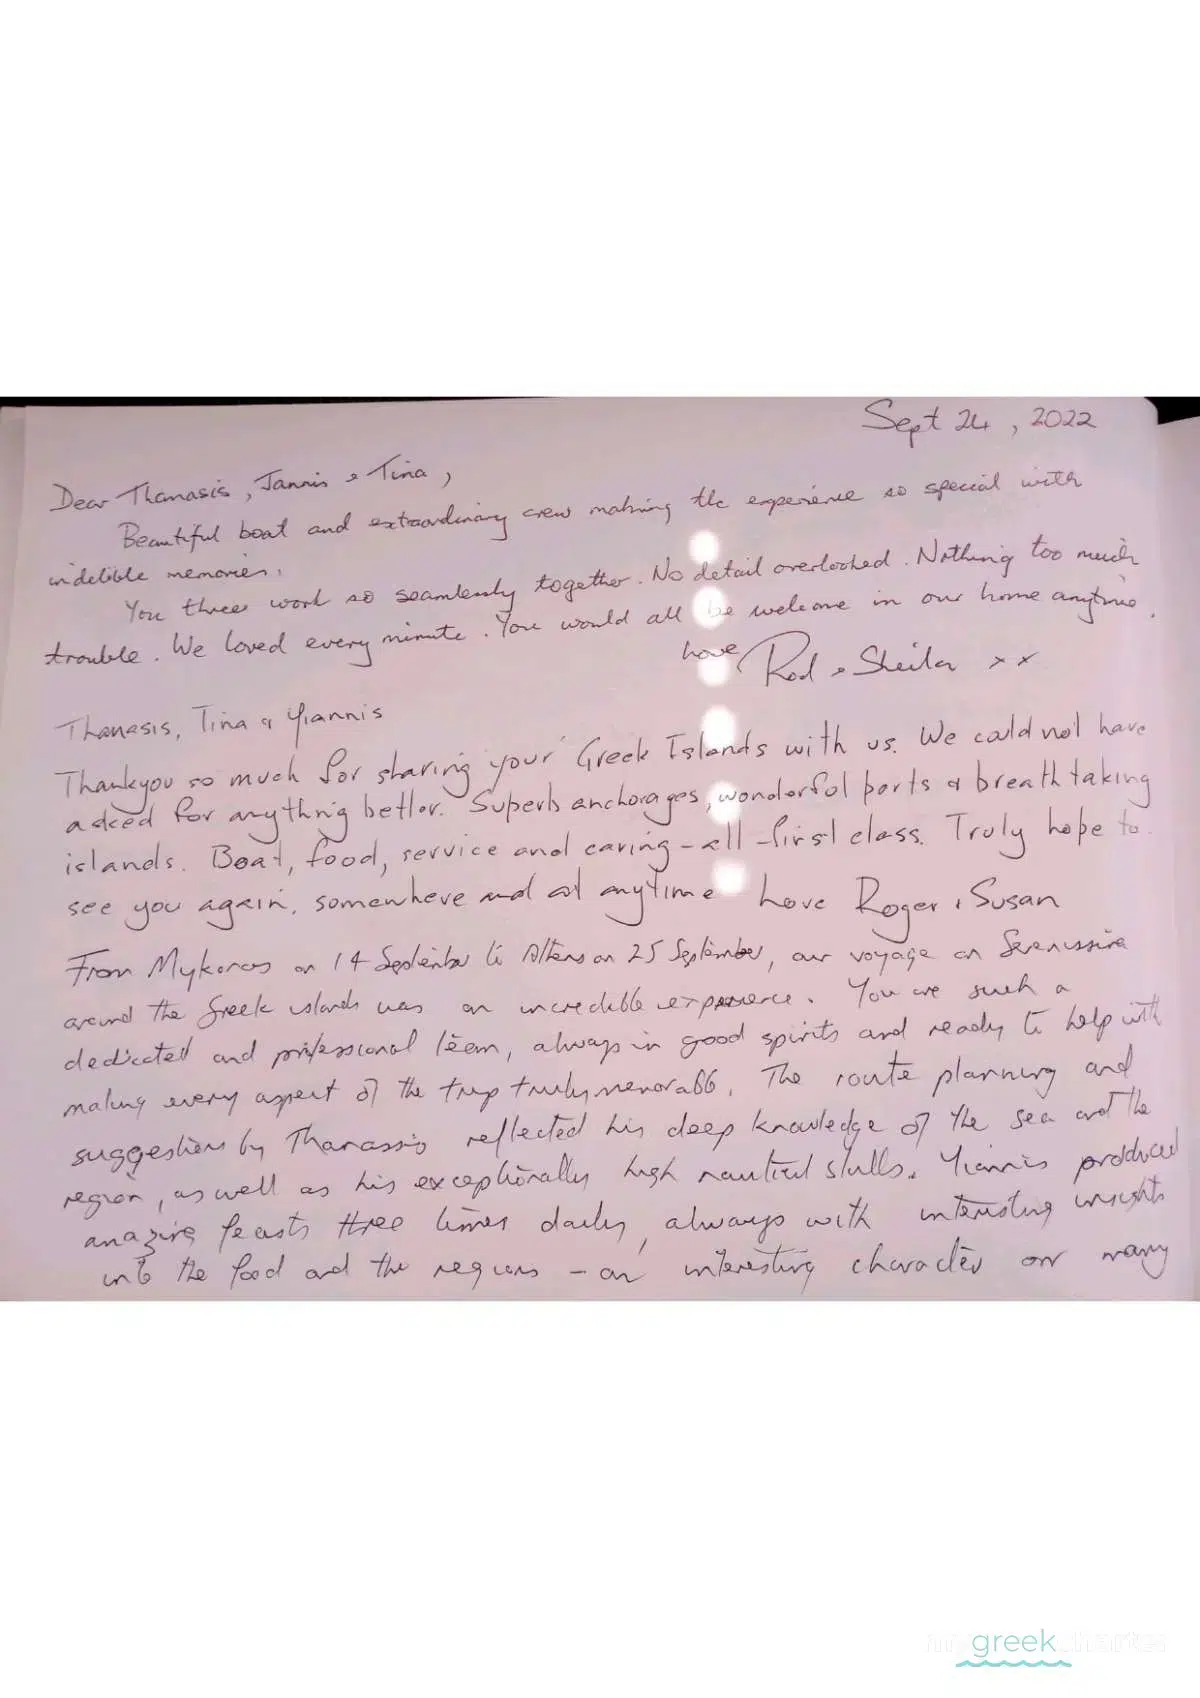 Sept 24, 2022
Dear Thanasis, Jannis & Tina,
Beautiful boat and extraordinary crew making the experience so special with
indelible memories.
You three work so seamlessly together. No detail overlooked. Nothing too much
trouble. We loved every minute. You would all be welcome in our home anytime.
Love Rod & Sheila xx
Thanasis, Tina & Yiannis
Thankyou so much for sharing your Greek Islands with us. We could not have
asked for anything better. Superb anchorages, wonderful ports & breathtaking
islands. Boat, food, service and caring - all - first class. Truly hope to
see you again, somewhere and at anytime Love Roger & Susan
From Mykonos on 14 September to Athens on 25 September, our voyage on Serenissima
around the Greek islands was an incredible experience. You are such a
dedicated and professional team, always in good spirits and ready to help with
making every aspect of the trip truly memorable. The route planning and
suggestions by Thanassis reflected his deep knowledge of the sea and the
region, as well as his exceptionally high nautical skills. Yiannis produced
amazing feasts three times daily, always with interesting insights
into the food and the regions - an interesting character on many
my greek charter